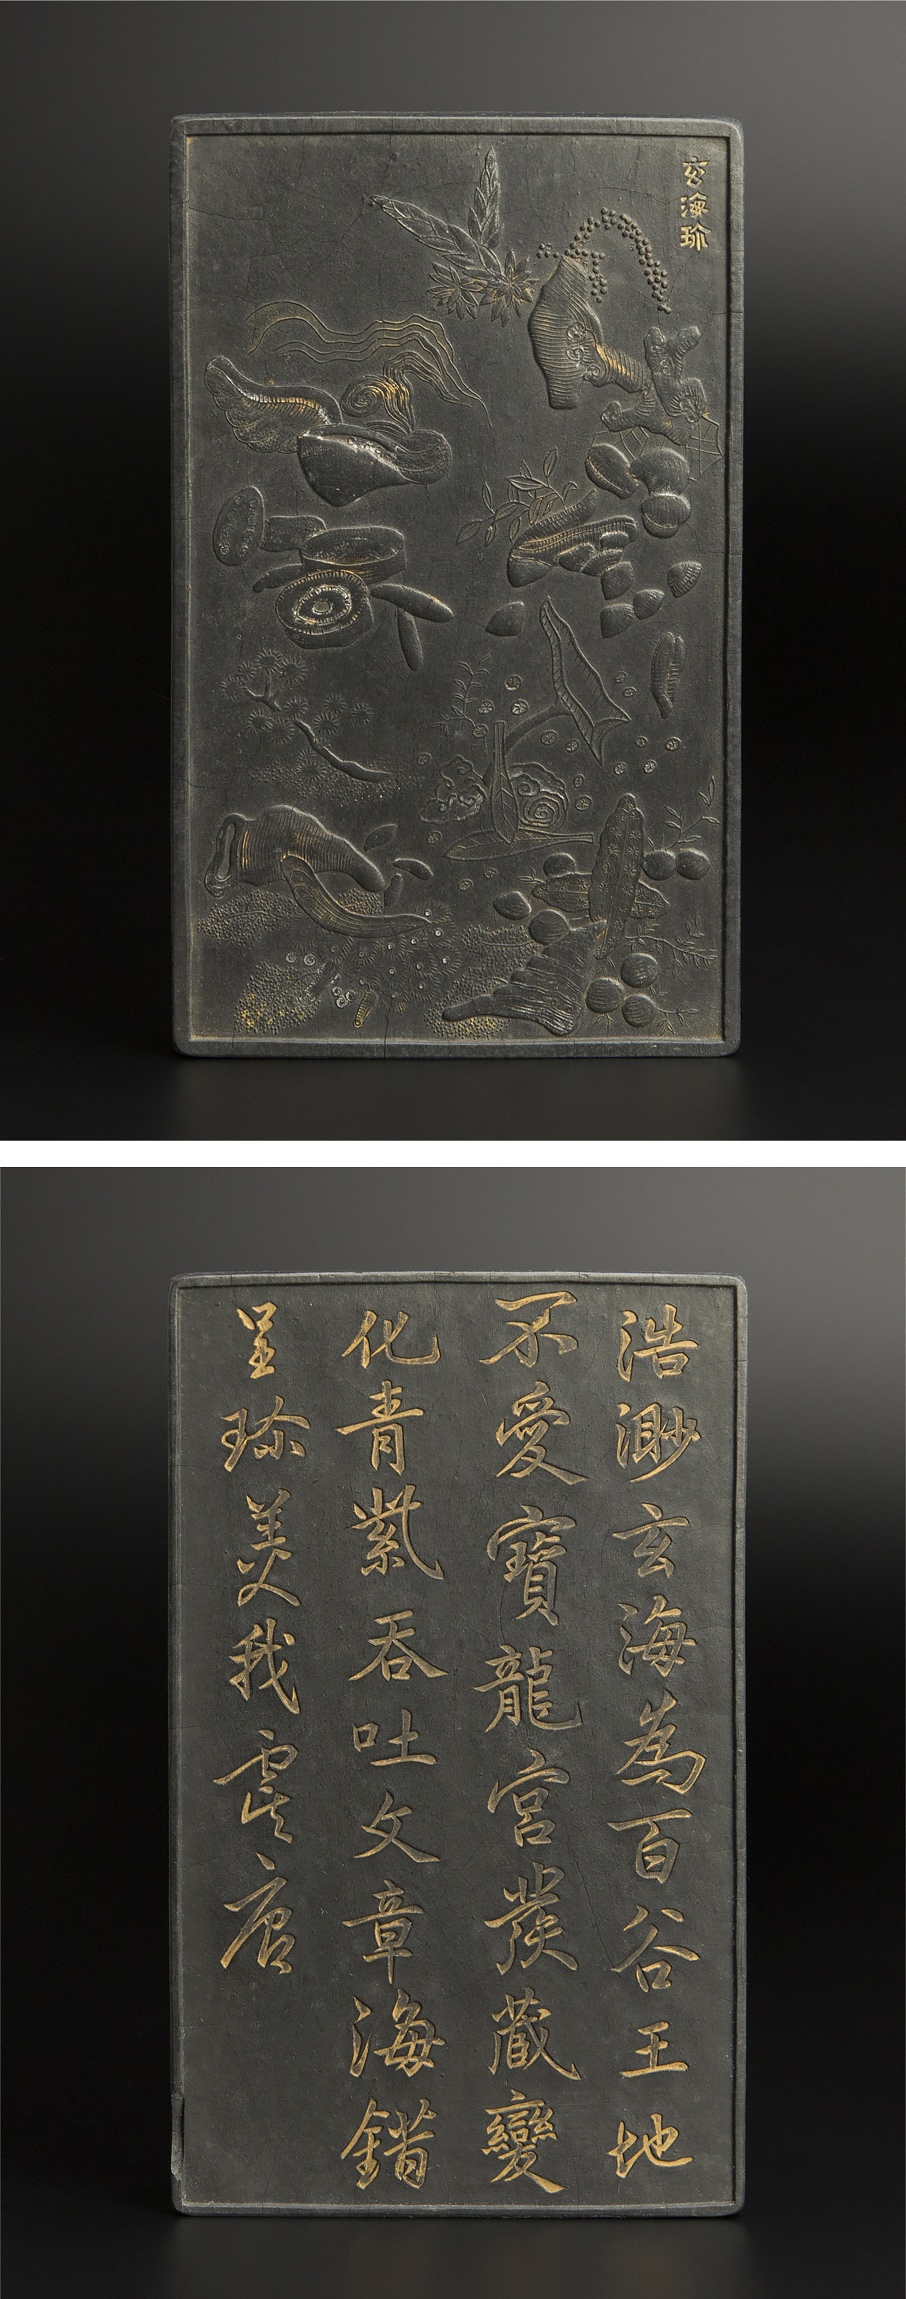 玄海珍
浩渺玄海為百谷王地
不愛寶龍宮發藏變
化青紫吞吐文章海錯
呈珍美我虞唐